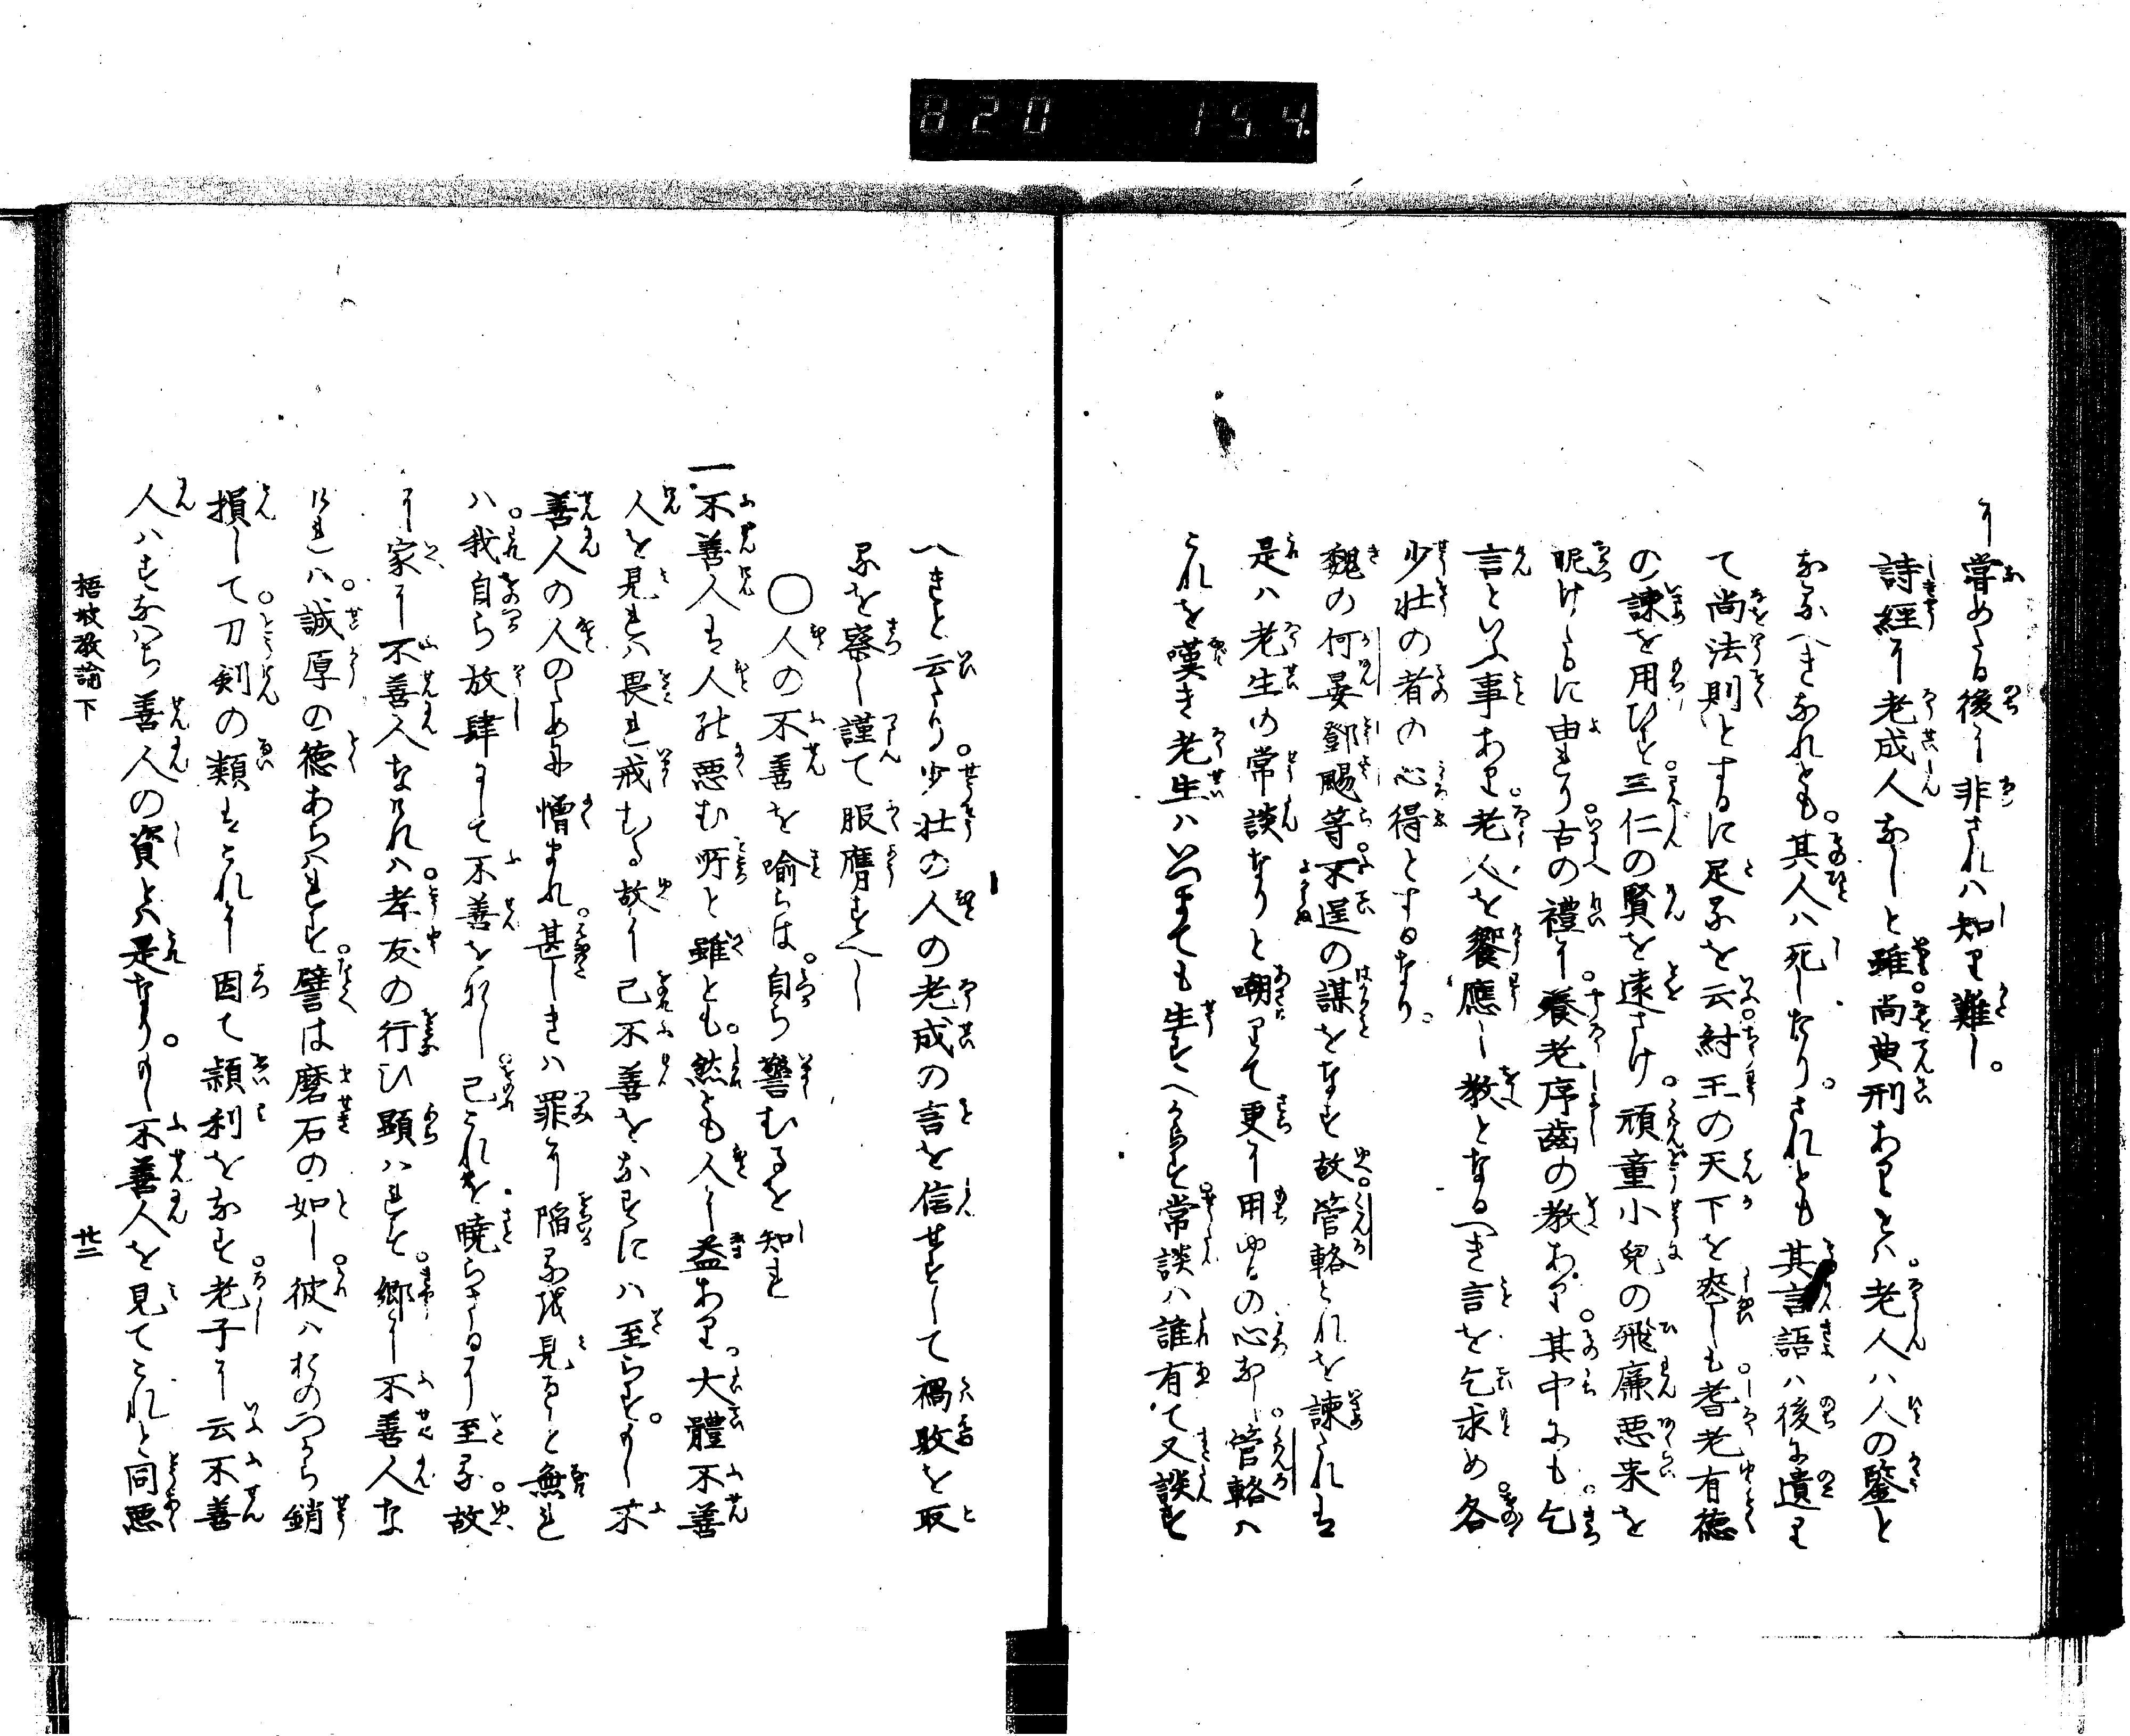 820 154.
に嘗めたる後に非されハ知り難し。
詩経に老成人なしと雖尚典刑ありとハ。老人ハ人の鑒と
なるへきなれとも。其人ハ死したり。されとも其言語ハ後に遺り
て尚法則とするに足るを云。紂王の天下を喪しも耆老有徳
の諫を用ひす。三仁の賢を遠さけ。頑童小兒の飛廉悪来を
昵けしに由れり。古の禮に。養老序齒の教あり。其中にも。乞
言といふ事あり。老人を饗應し教となるへき言を乞求め。各
少壮の者の心得とするなり。
魏の何晏鄧颺等。不逞の謀をなす故。管輅これを諫れは
是ハ老生の常談なりと嘲りて更に用ゆるの心なし。管輅ハ
これを嘆き老生ハいつまても生すへからす。常談ハ誰有て又談す
へきと云たり。少壮の人の老成の言を信せすして禍敗を取
るを察し謹て服膺すへし
〇人の不善を喩らは。自ら警むるを知れ
一不善人は人の悪む所と雖とも。然とも人に益あり。大體不善
人を見れハ畏れ戒むる故に己不善をなすにハ至らす。もし不
善人の人のために憎まれ。甚しきハ罪に陥るを見ること無れ
ハ。我自ら放肆にして不善を形し。己これを暁らさるに至る。故
に家に不善人なけれハ。孝友の行ひ顕ハれす。郷に不善人な
けれハ。誠厚の徳あらハれす。譬は磨石の如し彼ハおのつから銷
損して。刀剣の類はこれに因て頴利をなす。老子に云不善
人ハすなハち善人の資とハ是なり。もし不善人を見てこれと同悪
梧坡教諭下 廿二